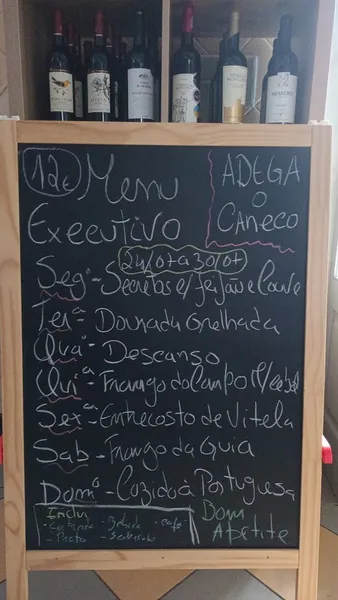 12€ Menu
Executivo
ADEGA
O
CANECO
24/07 a 30/07
Segª - Secretos c/ feijão e Couve
Terª - Dourada Grelhada
Quaª - Descanso
Quiª - Frango do Campo
Sexª - Entrecosto de Vitela
Sab - Frango da Guia
Domº - Cozido à Portuguesa
Inclui
- Bebida - Café
- Prato - Sobremesa
BOM
APETITE